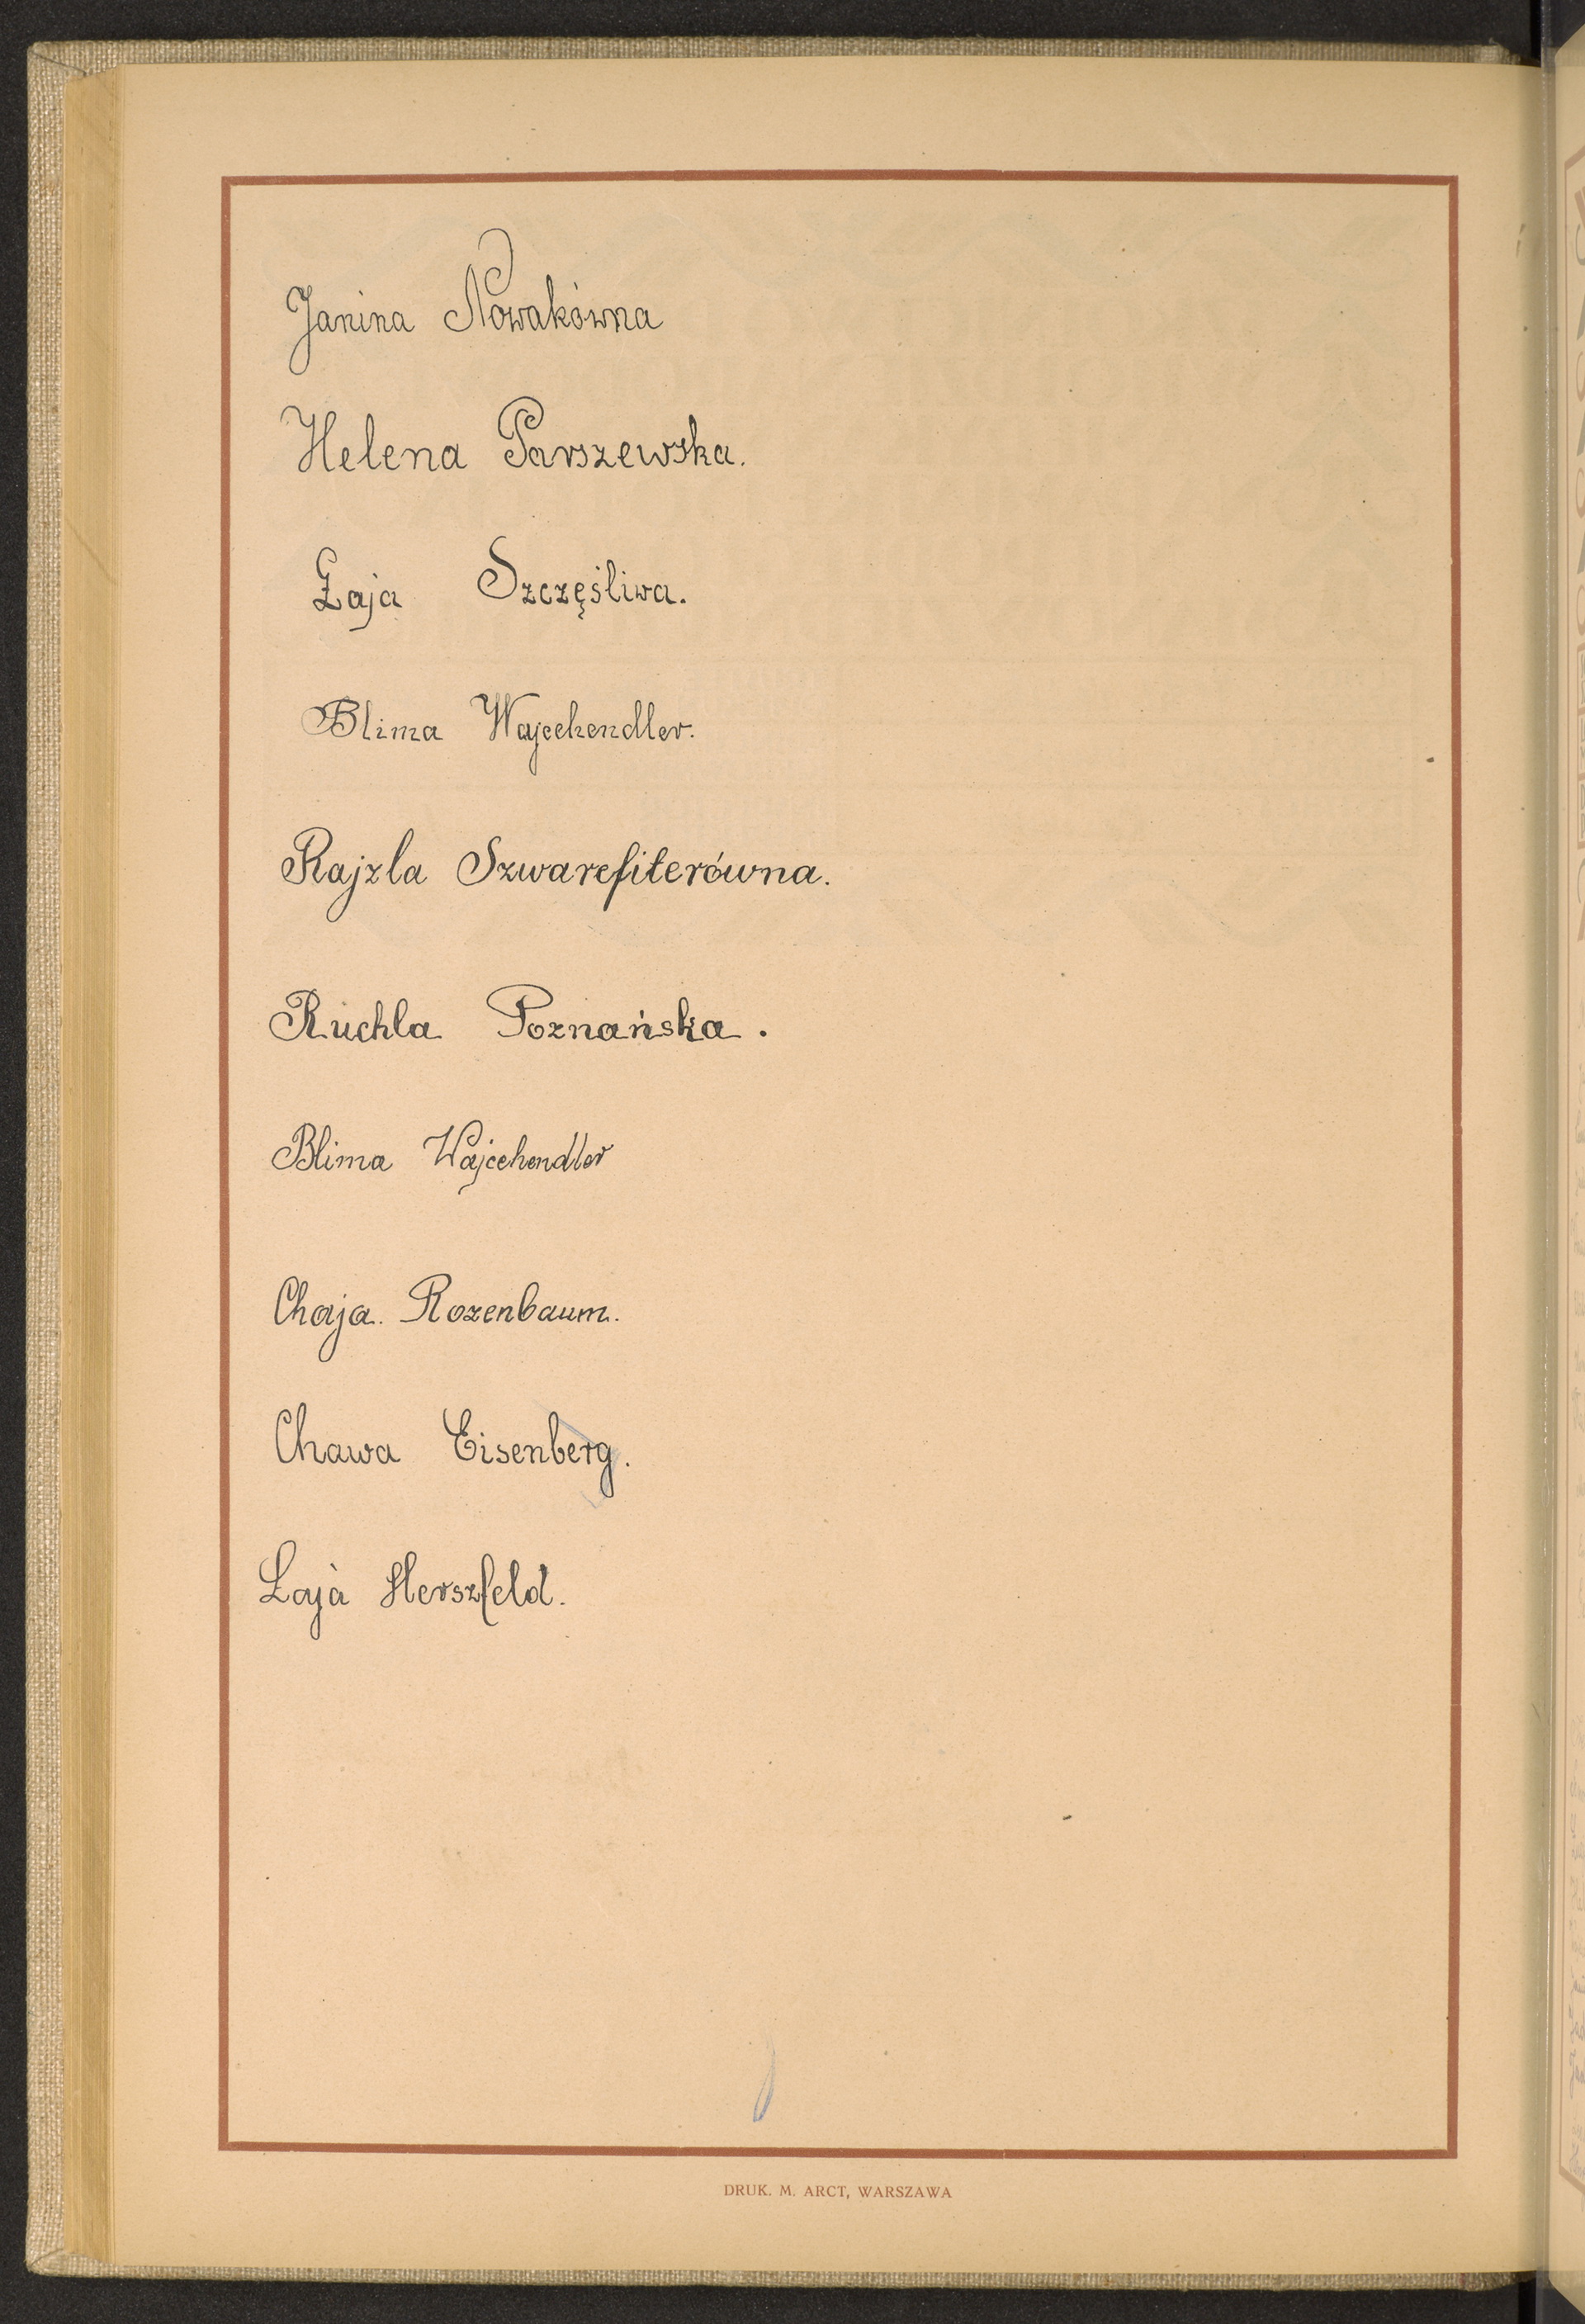 Janina Nowakówna
Helena Parszewska.
Łaja Szczęśliwa.
Blima Wajcehendler.
Rajzla Szwarcfiterówna.
Ruchla Poznańska.
Blima Wajcehendler
Chaja. Rozenbaum.
Chawa Eisenberg.
Łaja Herszfeld.
DRUK. M. ARCT, WARSZAWA